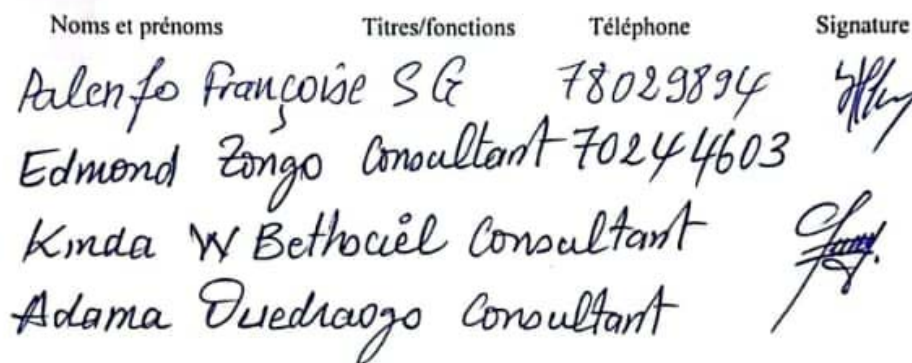 Noms et prénoms Titres/fonctions Téléphone Signature
Palenfo Françoise SG 78029894
Edmond Zongo Consultant 70244603
Kinda W Bethociël Consultant
Adama Ouedraogo Consultant